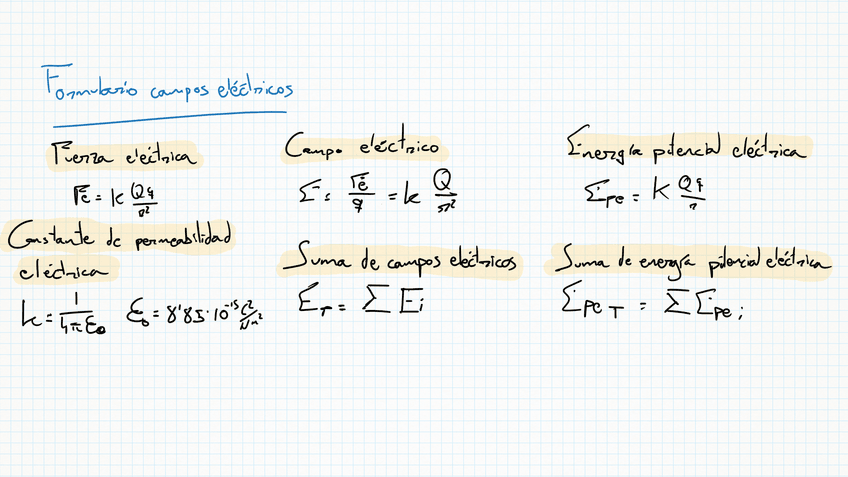 Formulario campos eléctricos
Fuerza eléctrica
Fe = k Qq/r²
Constante de permeabilidad
eléctrica
k = 1/4πε₀ ε₀ = 8'85·10⁻¹⁵ C²/Nm²
Campo eléctrico
E = Fe/q = k Q/r²
Suma de campos eléctricos
E_T = Σ Ei
Energía potencial eléctrica
Epe = K Qq/r
Suma de energía potencial eléctrica
Epe T = Σ Epe i